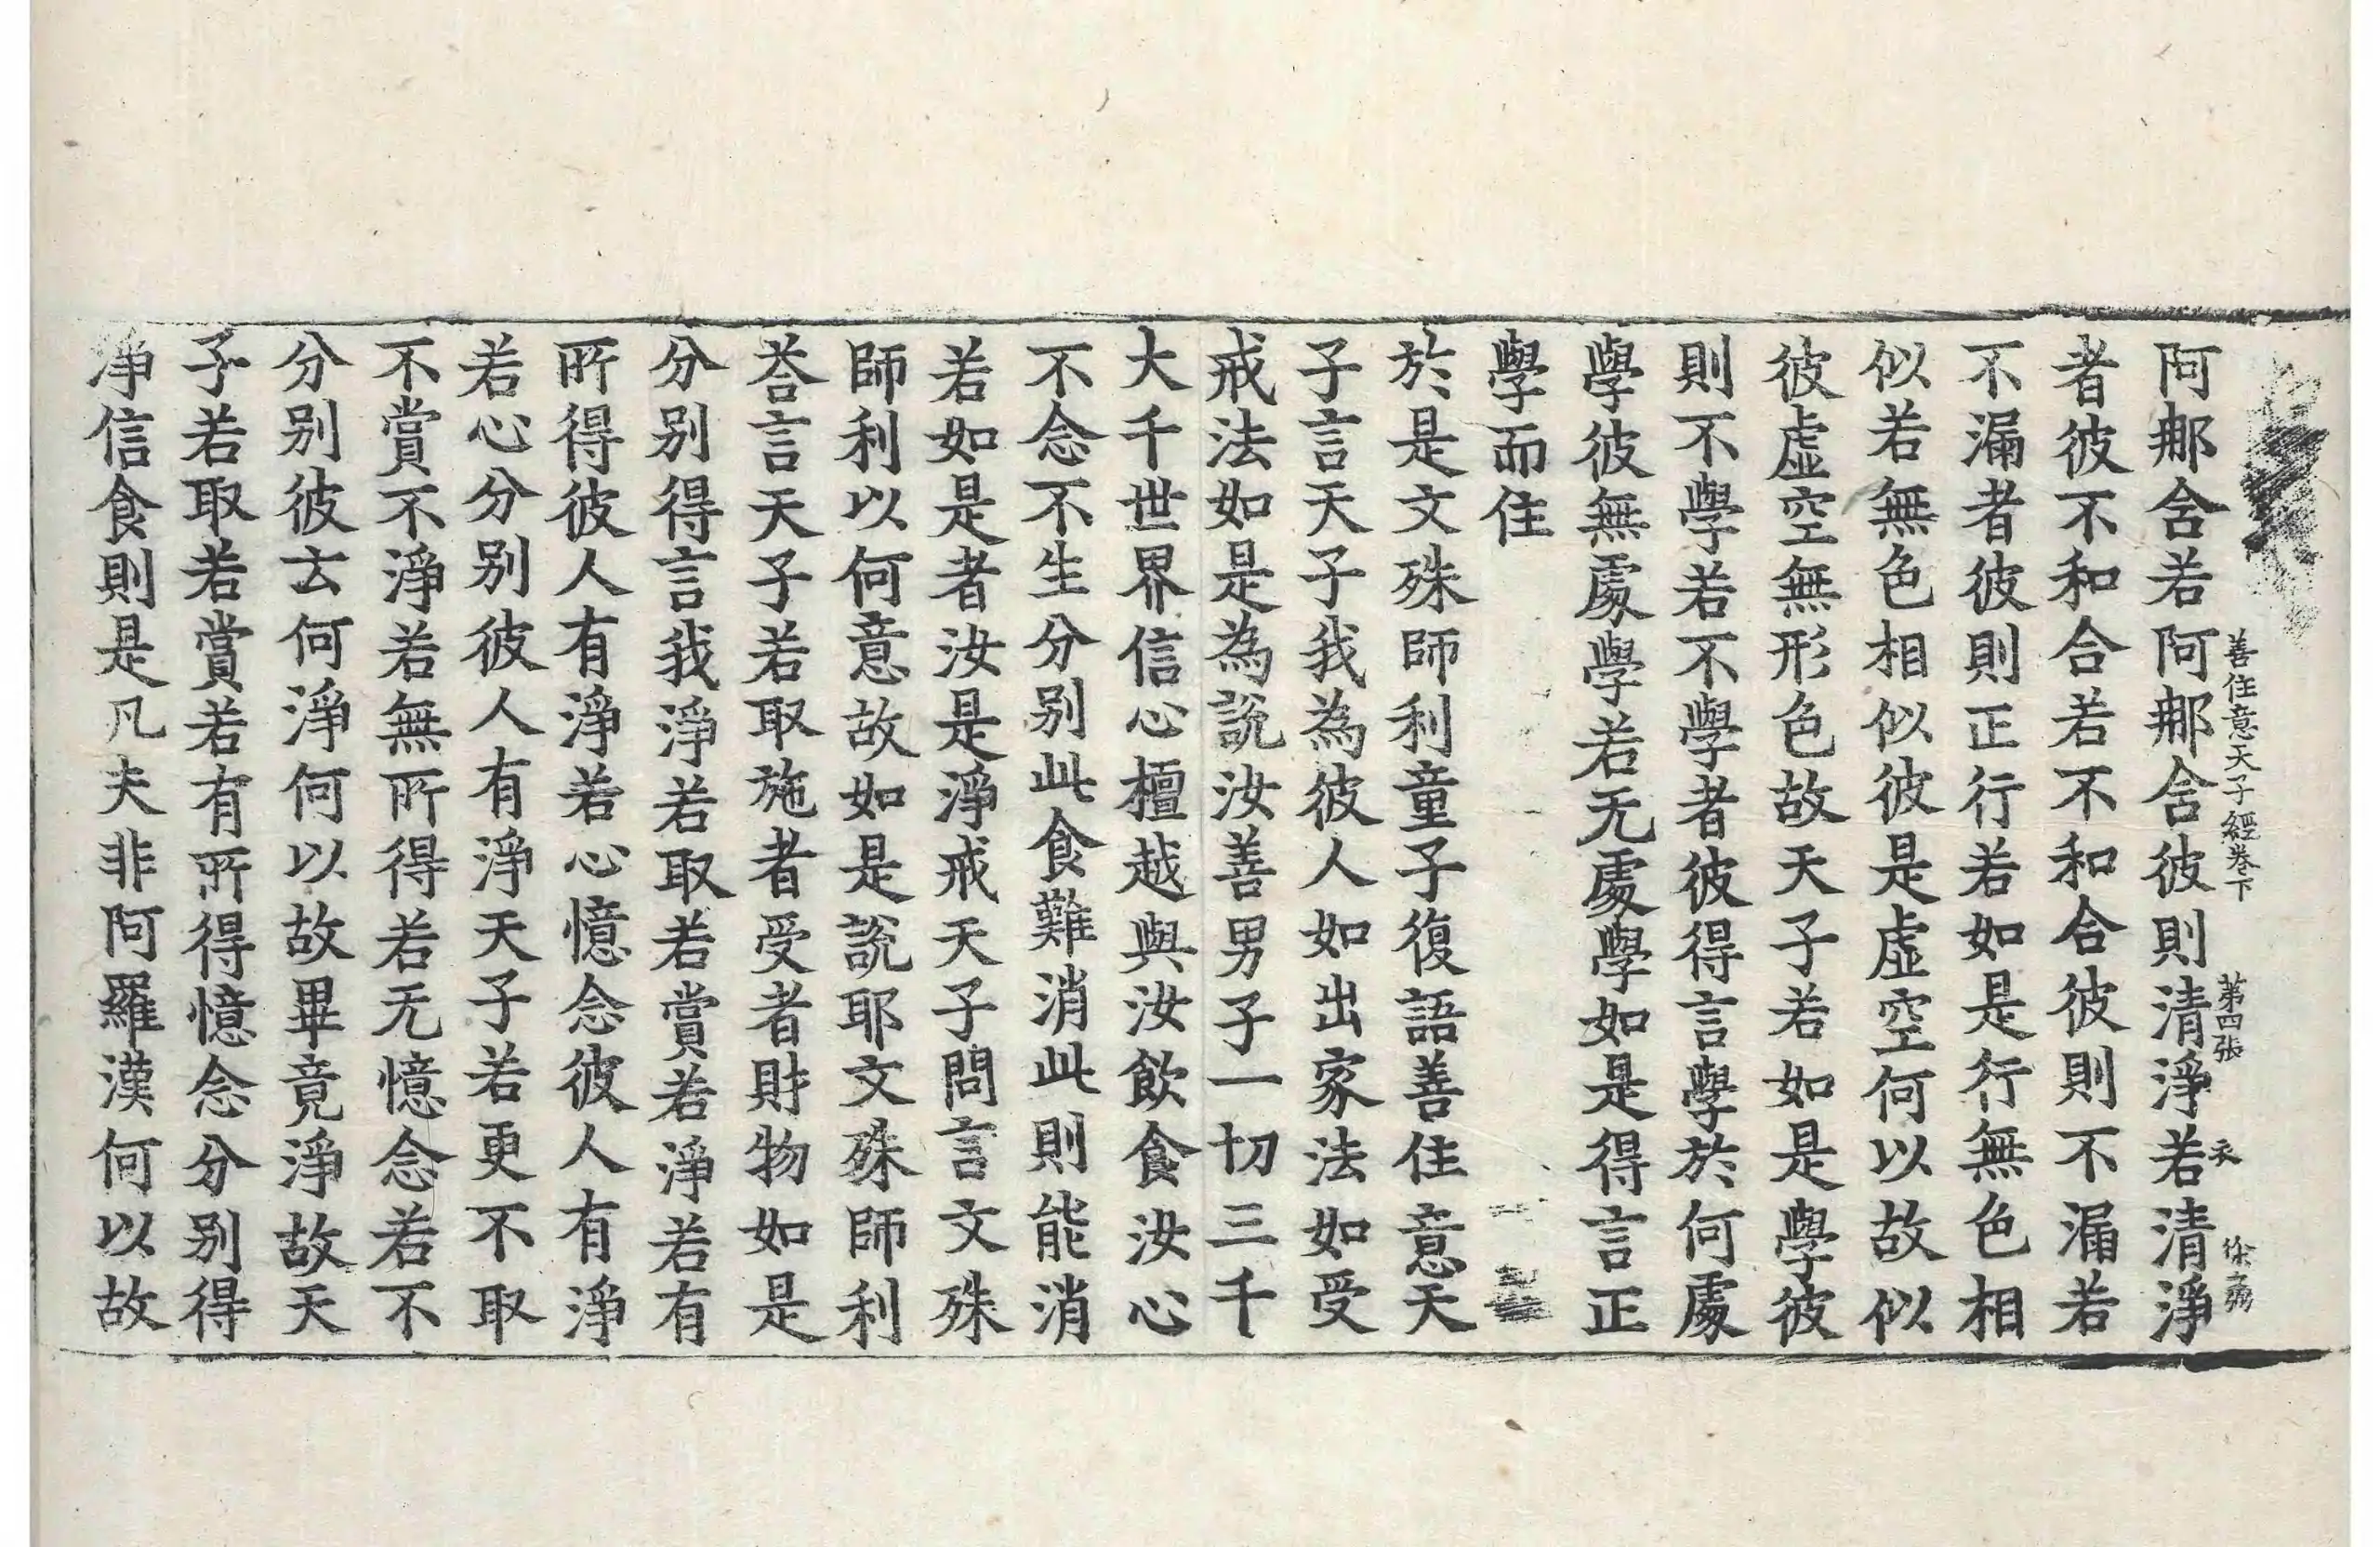 善住意天子經卷下 第四張 衣 徐
阿那含若阿那含彼則清淨若清淨
者彼不和合若不和合彼則不漏若
不漏者彼則正行若如是行無色相
似若無色相似彼是虛空何以故似
彼虛空無形色故天子若如是學彼
則不學若不學者彼得言學於何處
學彼無處學若无處學如是得言正
學而住
於是文殊師利童子復語善住意天
子言天子我為彼人如出家法如受
戒法如是為說汝善男子一切三千
大千世界信心檀越與汝飲食汝心
不念不生分別此食難消此則能消
若如是者汝是淨戒天子問言文殊
師利以何意故如是說耶文殊師利
荅言天子若取施者受者財物如是
分別得言我淨若取若賞若淨若有
所得彼人有淨若心憶念彼人有淨
若心分別彼人有淨天子若更不取
不賞不淨若無所得若无憶念若不
分別彼云何淨何以故畢竟淨故天
子若取若賞若有所得憶念分別得
淨信食則是凡夫非阿羅漢何以故